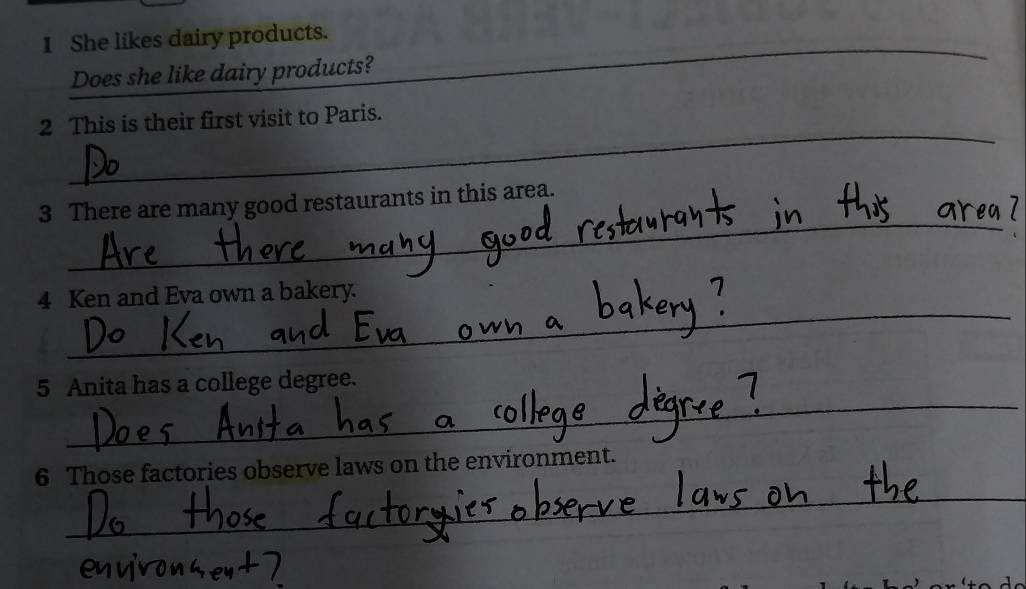 1 She likes dairy products.
Does she like dairy products?
2 This is their first visit to Paris.
Do
3 There are many good restaurants in this area.
Are there many good restaurants in this area?
4 Ken and Eva own a bakery.
Do Ken and Eva own a bakery?
5 Anita has a college degree.
Does Anita has a college degree?
6 Those factories observe laws on the environment.
Do those factories observe laws on the
environment?